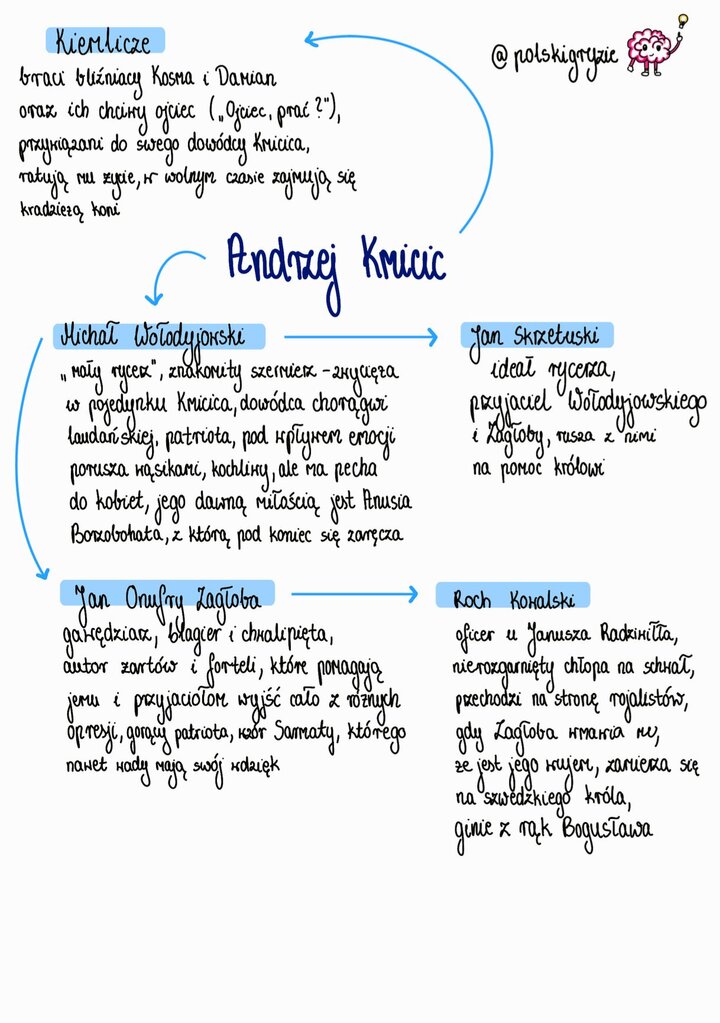 Kiemlicze
@polskigryzie
braci bliźniacy Kosma i Damian
oraz ich chciwy ojciec („Ojciec, prać?"),
przywiązani do swego dowódcy Kmicica,
ratują mu życie, w wolnym czasie zajmują się
kradzieżą koni
Andrzej Kmicic
Michał Wołodyjowski
„mały rycerz", znakomity szermierz – zwycięża
w pojedynku Kmicica, dowódca chorągwi
laudańskiej, patriota, pod wpływem emocji
porusza wąsikami, kochliwy, ale ma pecha
do kobiet, jego dawną miłością jest Anusia
Borzobohata, z którą pod koniec się zaręcza
Jan Skrzetuski
ideał rycerza,
przyjaciel Wołodyjowskiego
i Zagłoby, rusza z nimi
na pomoc królowi
Jan Onufry Zagłoba
gawędziarz, blagier i chwalipięta,
autor żartów i forteli, które pomagają
jemu i przyjaciołom wyjść cało z różnych
opresji, gorący patriota, wzór Sarmaty, którego
nawet wady mają swój wdzięk
Roch Kowalski
oficer u Janusza Radziwiłła,
nierozgarnięty chłopa na schwał,
przechodzi na stronę rojalistów,
gdy Zagłoba wmawia mu,
że jest jego wujem, zamierza się
na szwedzkiego króla,
ginie z rąk Bogusława